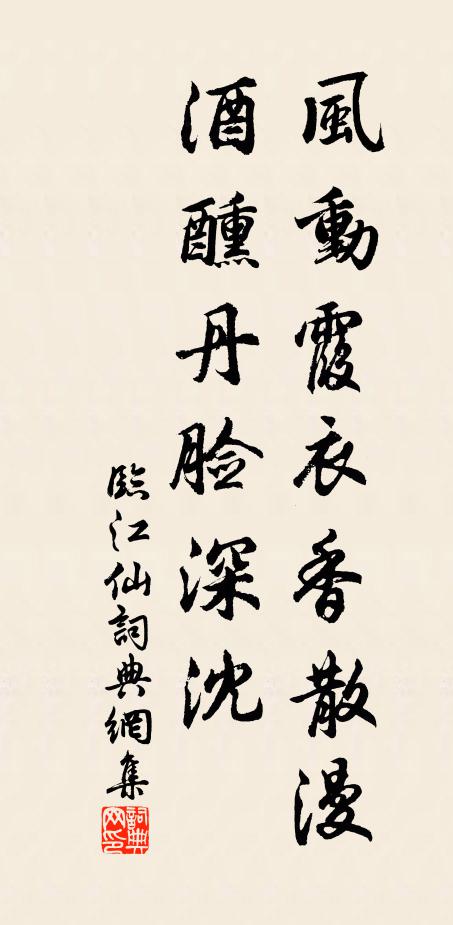 風動霞衣香散漫
酒醺丹臉深沈
臨江仙詞典網集
詞典网印